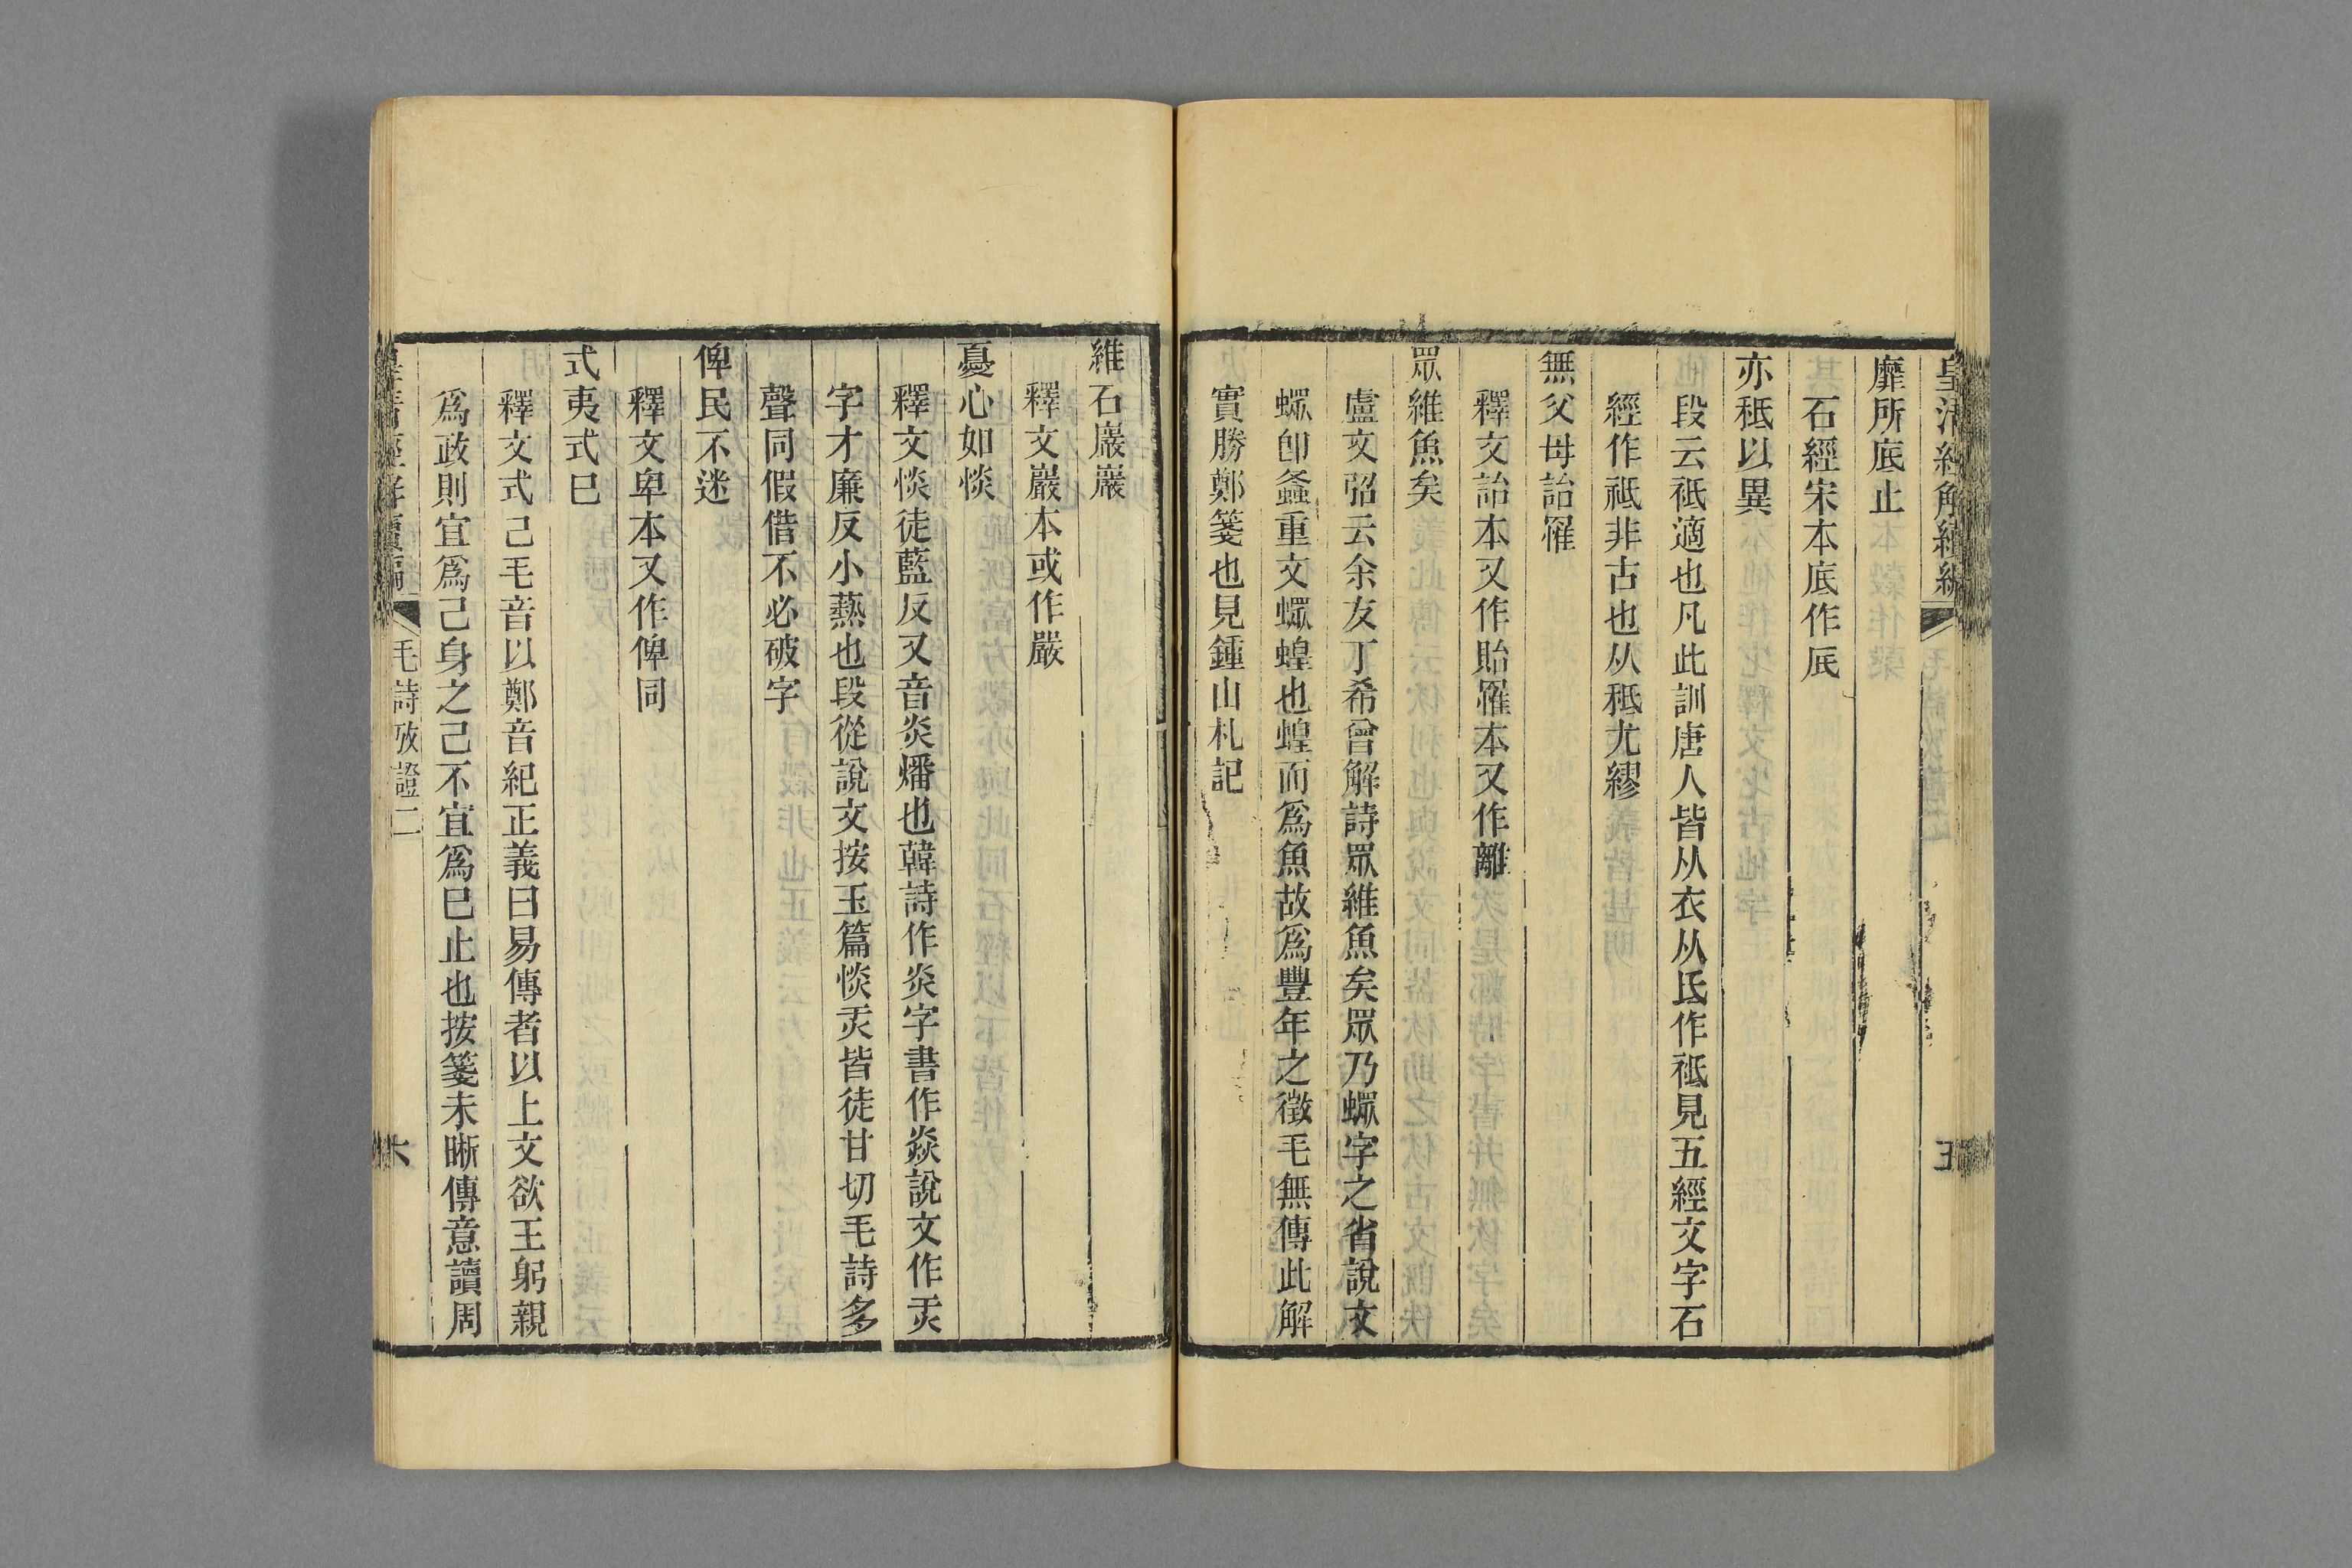 皇清經解續編
靡所底止
石經宋本底作㡳
亦秪以異
段云祇適也凡此訓唐人皆从衣从氏作祗見五經文字石
經作祗非古也从秪尤繆
無父母詒罹
釋文詒本又作貽罹本又作離
眾維魚矣
盧文弨云余友丁希曾解詩眾維魚矣眾乃螺字之省說文
螺卽螽重文螺蝗也蝗而爲魚故爲豐年之徵毛無傳此解
實勝鄭箋也見鍾山札記
維石巖巖
釋文巖本或作嚴
憂心如惔
釋文惔徒藍反又音炎燔也韓詩作炎字書作焱說文作𤆎
字才廉反小爇也段從說文按玉篇惔𤆎皆徒甘切毛詩多
聲同假借不必破字
俾民不迷
釋文卑本又作俾同
式夷式巳
釋文式己毛音以鄭音紀正義曰易傳者以上文欲王躬親
爲政則宜爲己身之己不宜爲巳止也按箋未晰傳意讀周
皇清經解續編
毛詩攷證二
六